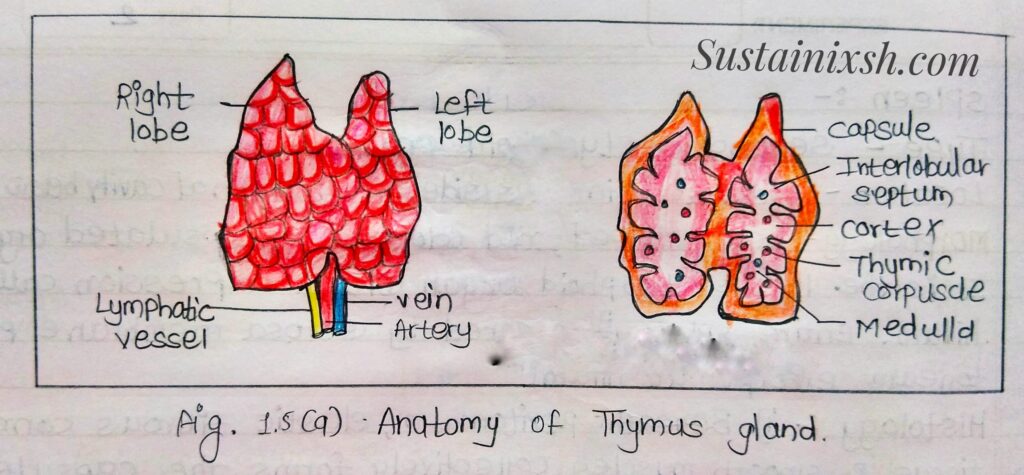 Sustainixsh.com
Right
lobe
Left
lobe
Lymphatic
vessel
vein
Artery
capsule
Interlobular
septum
cortex
Thymic
corpuscle
Medulla
Fig. 1.5(a) Anatomy of Thymus gland.